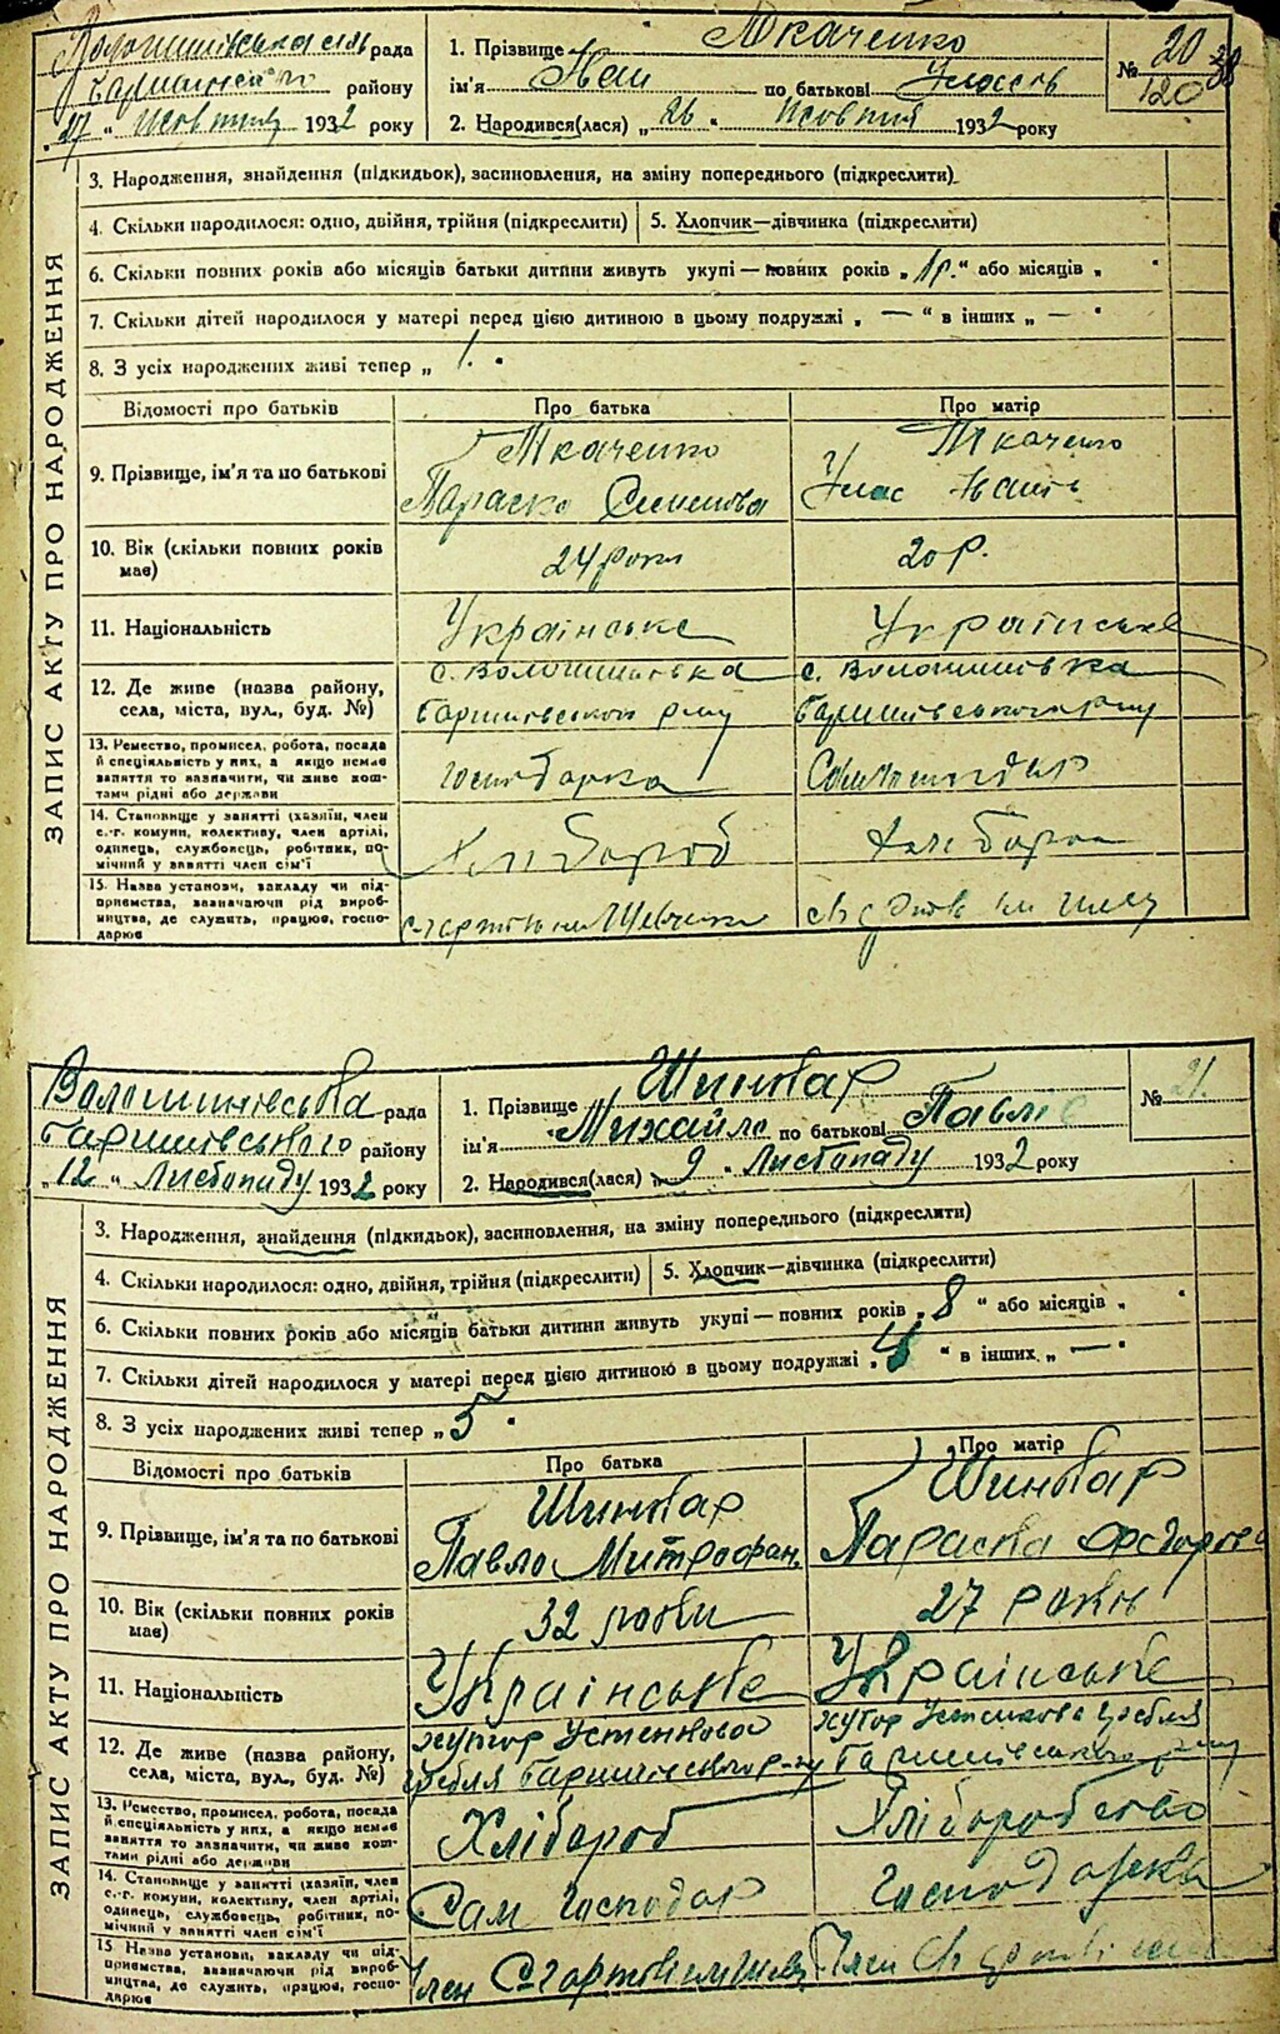 Волошинівська сіль рада
району
27 " Жовтня 1932 року
1. Прізвище Ткаченко
ім'я Іван по батькові Уласів
2. Народився(лася) „ 26 " Жовтня 1932 року
№ 20
120
38
ЗАПИС АКТУ ПРО НАРОДЖЕННЯ
3. Народження, знайдення (підкидьок), засиновлення, на зміну попереднього (підкреслити)
4. Скільки народилося: одно, двійня, трійня (підкреслити)
5. Хлопчик—дівчинка (підкреслити)
6. Скільки повних років або місяців батьки дитини живуть укупі — повних років „ 1р. " або місяців „ "
7. Скільки дітей народилося у матері перед цією дитиною в цьому подружжі „ — " в інших „ — "
8. З усіх народжених живі тепер „ 1. "
Відомості про батьків Про батька Про матір
9. Прізвище, ім'я та по батькові
Ткаченко Ткаченко
Параска Семенова Улас Іванів
10. Вік (скільки повних років має)
24 роки 20 р.
11. Національність Українське Українське
12. Де живе (назва району, села, міста, вул., буд. №)
с. Волошинівка с. Волошинівка
Баришівського р-ну Баришівського р-ну
13. Ремество, промисел, робота, посада й спеціяльність у них, а якщо немає заняття то зазначити, чи живе коштами рідні або держави
господарка
14. Становище у занятті (хазяїн, член с.-г. комуни, колективу, член артілі, одинець, службовець, робітник, помічний у занятті член сім'ї
Хлібороб
15. Назва установи, закладу чи підприємства, зазначаючи рід виробництва, де служить, працює, господарює
с-г артіль ім Шевченка
Волошинівська рада
Баришівського району
„ 12 " Листопаду 1932 року
1. Прізвище Шинкар
ім'я Михайло по батькові Павлів
2. Народився(лася) „ 9 " Листопаду 1932 року
№ 21.
ЗАПИС АКТУ ПРО НАРОДЖЕННЯ
3. Народження, знайдення (підкидьок), засиновлення, на зміну попереднього (підкреслити)
4. Скільки народилося: одно, двійня, трійня (підкреслити)
5. Хлопчик—дівчинка (підкреслити)
6. Скільки повних років або місяців батьки дитини живуть укупі — повних років „ 8 " або місяців „ "
7. Скільки дітей народилося у матері перед цією дитиною в цьому подружжі „ 4 " в інших „ — "
8. З усіх народжених живі тепер „ 5 "
Відомості про батьків Про батька Про матір
9. Прізвище, ім'я та по батькові
Шинкар Шинкар
Павло Митрофан. Параска Федорова
10. Вік (скільки повних років має)
32 роки 27 років
11. Національність Українське Українське
12. Де живе (назва району, села, міста, вул., буд. №)
хутор Устенкова хутор Устенкова Гребля
Гребля Баришівського р-ну Баришівського р-ну
13. Ремество, промисел, робота, посада й спеціяльність у них, а якщо немає заняття то зазначити, чи живе коштами рідні або держави
Хлібороб Хліборобство
14. Становище у занятті (хазяїн, член с.-г. комуни, колективу, член артілі, одинець, службовець, робітник, помічний у занятті член сім'ї
Сам господар господарка
15. Назва установи, закладу чи підприємства, зазначаючи рід виробництва, де служить, працює, господарює
Член Член